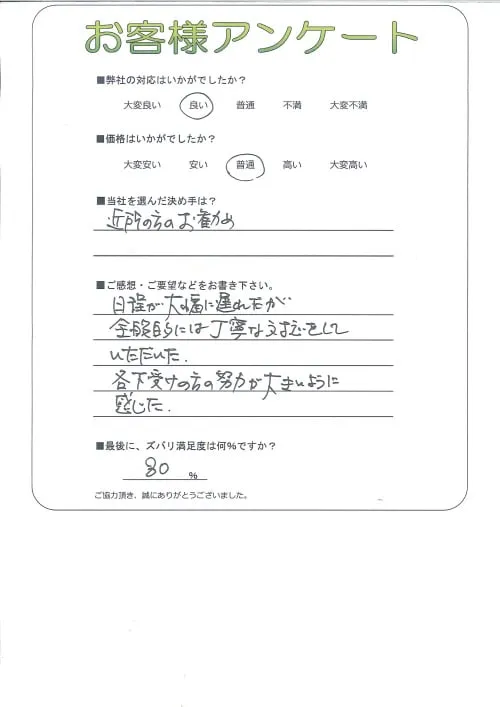 お客様アンケート
■弊社の対応はいかがでしたか?
大変良い 良い 普通 不満 大変不満
■価格はいかがでしたか?
大変安い 安い 普通 高い 大変高い
■当社を選んだ決め手は?
近所の方のお勧め
■ご感想・ご要望などをお書き下さい。
日程が大幅に遅れたが
全般的には丁寧な対応をして
いただいた.
各下受けの方の努力が大きいように
感じた.
■最後に、ズバリ満足度は何%ですか?
80 %
ご協力頂き、誠にありがとうございました。